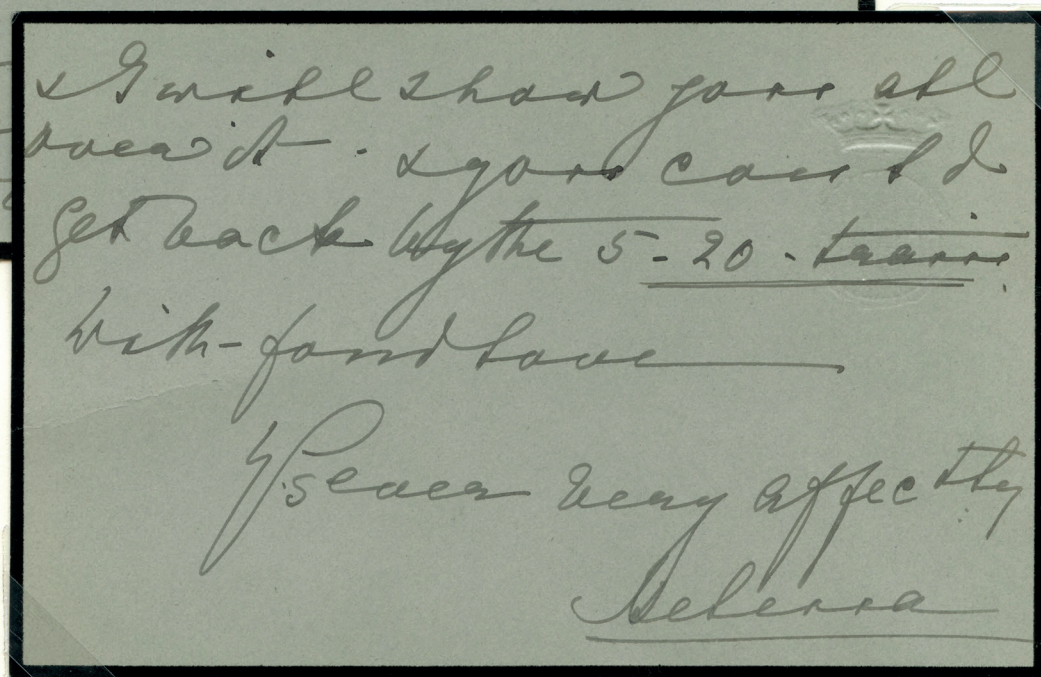 & I will show you all
over it. & you could
get back by the 5-20. train.
With fond love
Yrs ever very affectly
Helena